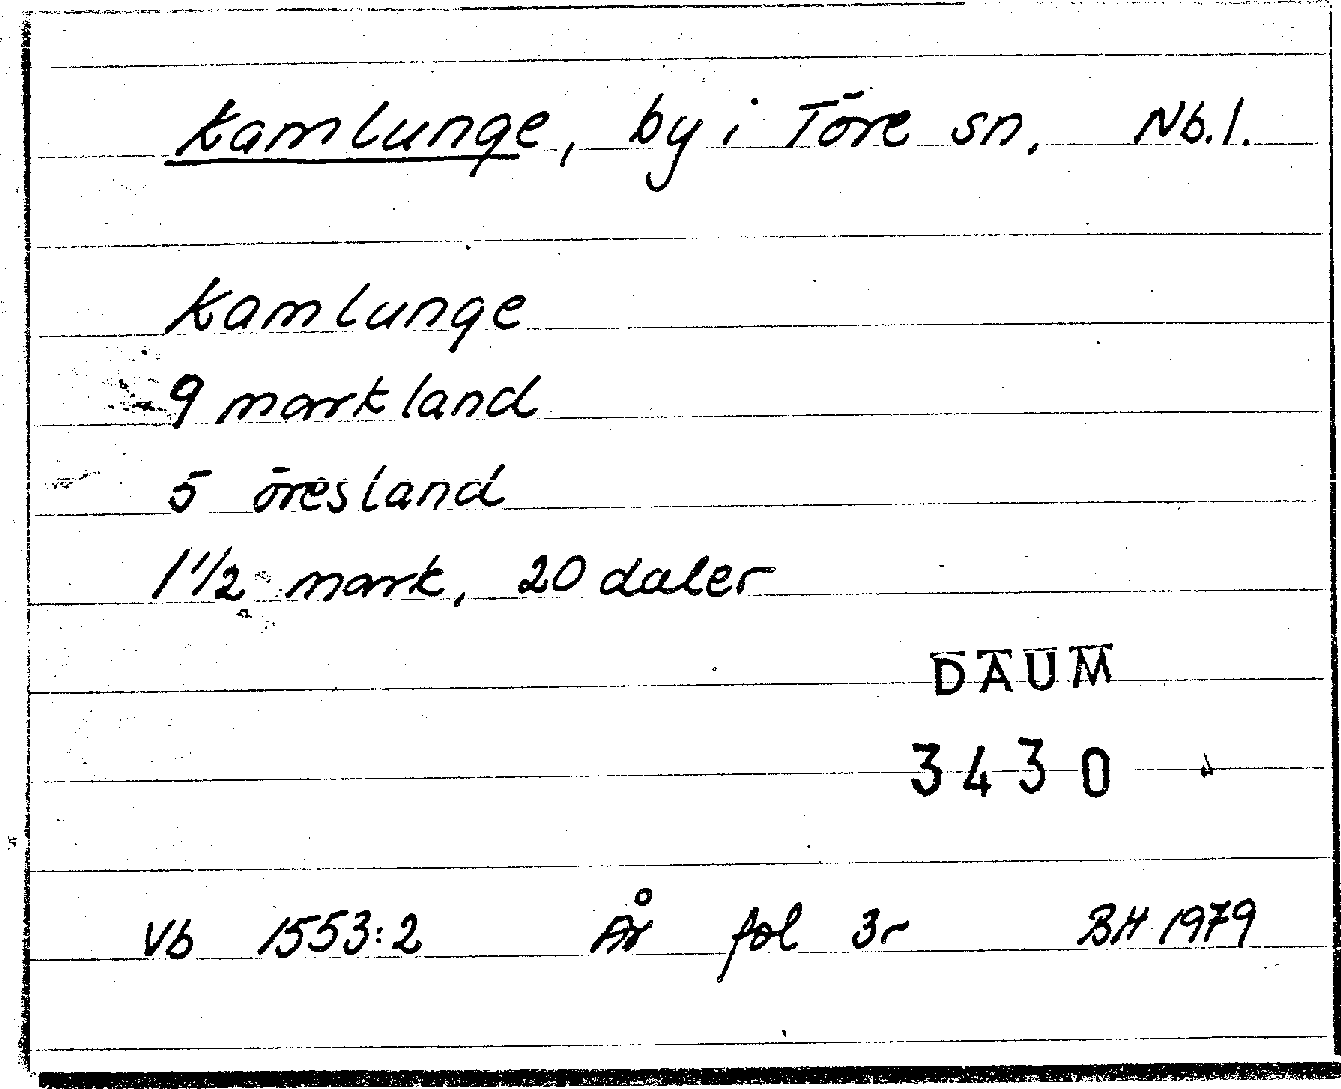 Kamlunge, by i Töre sn. Nb.l.
Kamlunge
9 markland
5 öresland
1 1/2 mark, 20 daler
DAUM
3430
Vb 1553:2 År fol 3r BH 1979